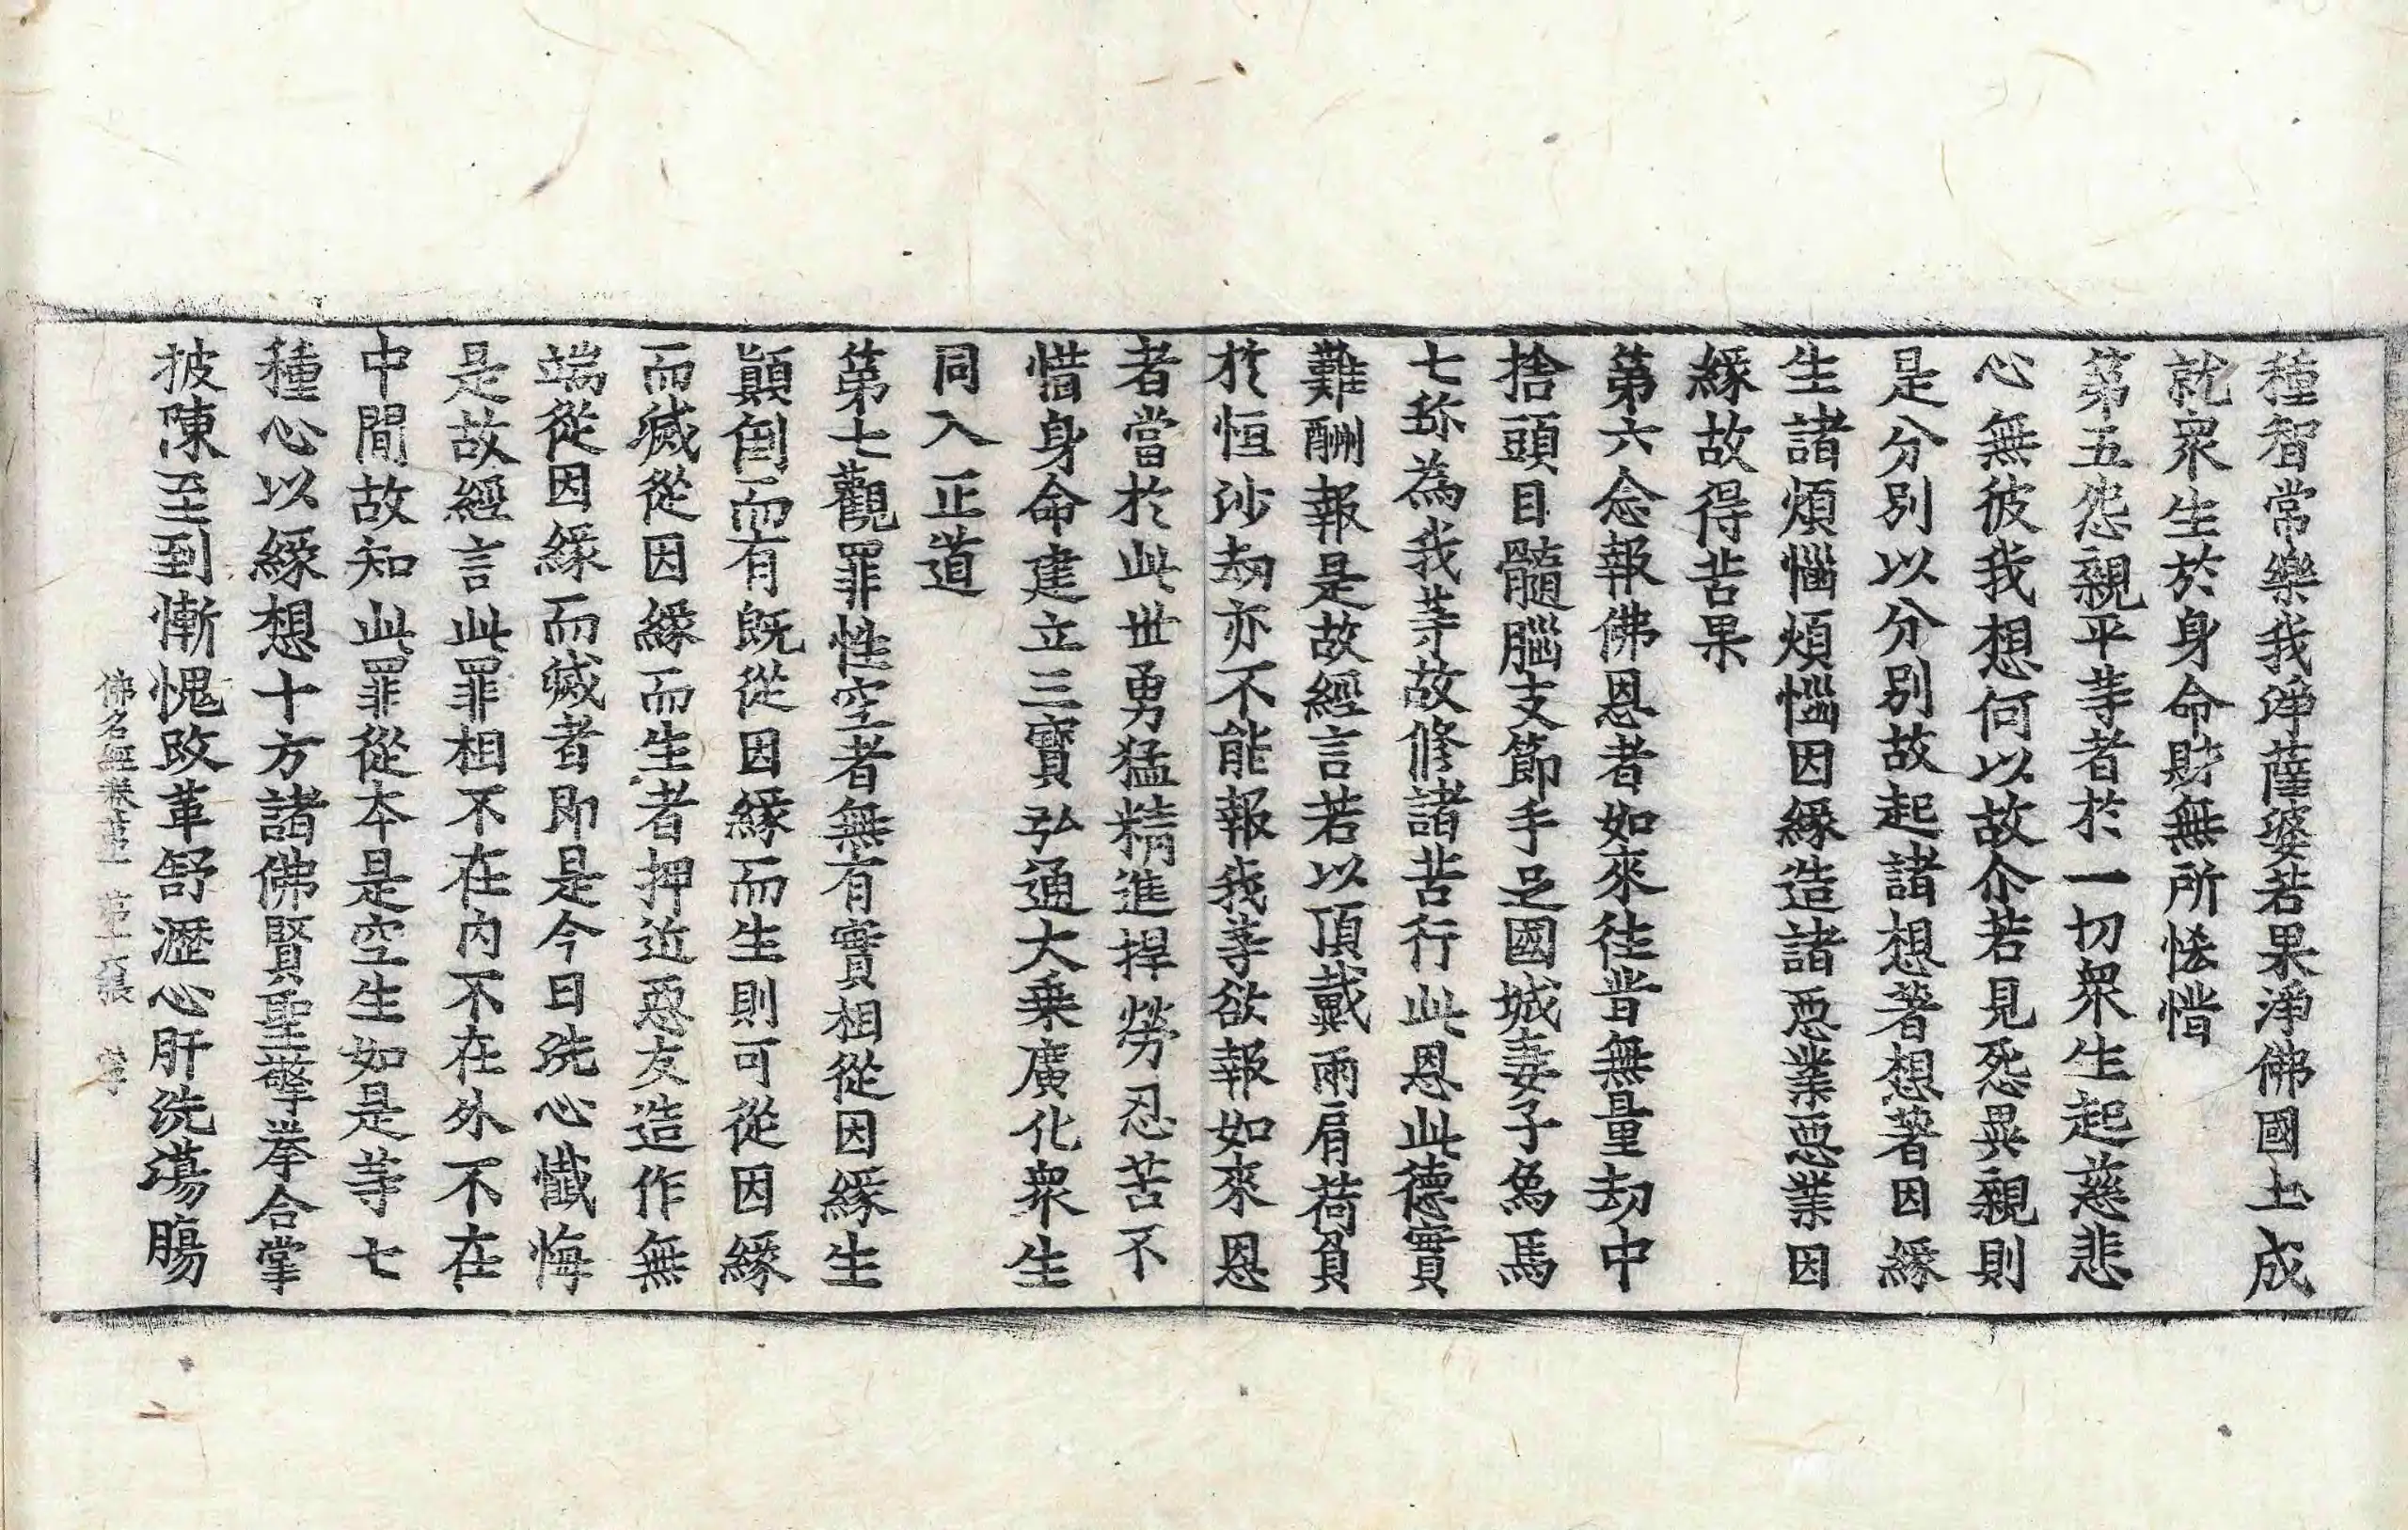 種智常樂我淨薩婆若果淨佛國土成
就衆生於身命財無所悋惜
第五怨親平等者於一切衆生起慈悲
心無彼我想何以故尒若見怨異親則
是分別以分別故起諸想著想著因緣
生諸煩惱煩惱因緣造諸惡業惡業因
緣故得苦果
第六念報佛恩者如來往昔無量劫中
捨頭目髓腦支節手足國城妻子象馬
七珎為我等故修諸苦行此恩此德實
難酬報是故經言若以頂戴兩肩荷負
於恒沙劫亦不能報我等欲報如來恩
者當於此世勇猛精進捍勞忍苦不
惜身命建立三寳弘通大乗廣化衆生
同入正道
第七觀罪性空者無有實相從因緣生
顛倒而有既從因緣而生則可從因緣
而滅從因緣而生者押近惡友造作無
端從因緣而滅者即是今日洗心懺悔
是故經言此罪相不在內不在外不在
中間故知此罪從本是空生如是等七
種心以緣想十方諸佛賢聖擎拳合掌
披陳至到慚愧改革舒瀝心肝洗蕩腸
佛名經卷第一 第十六張